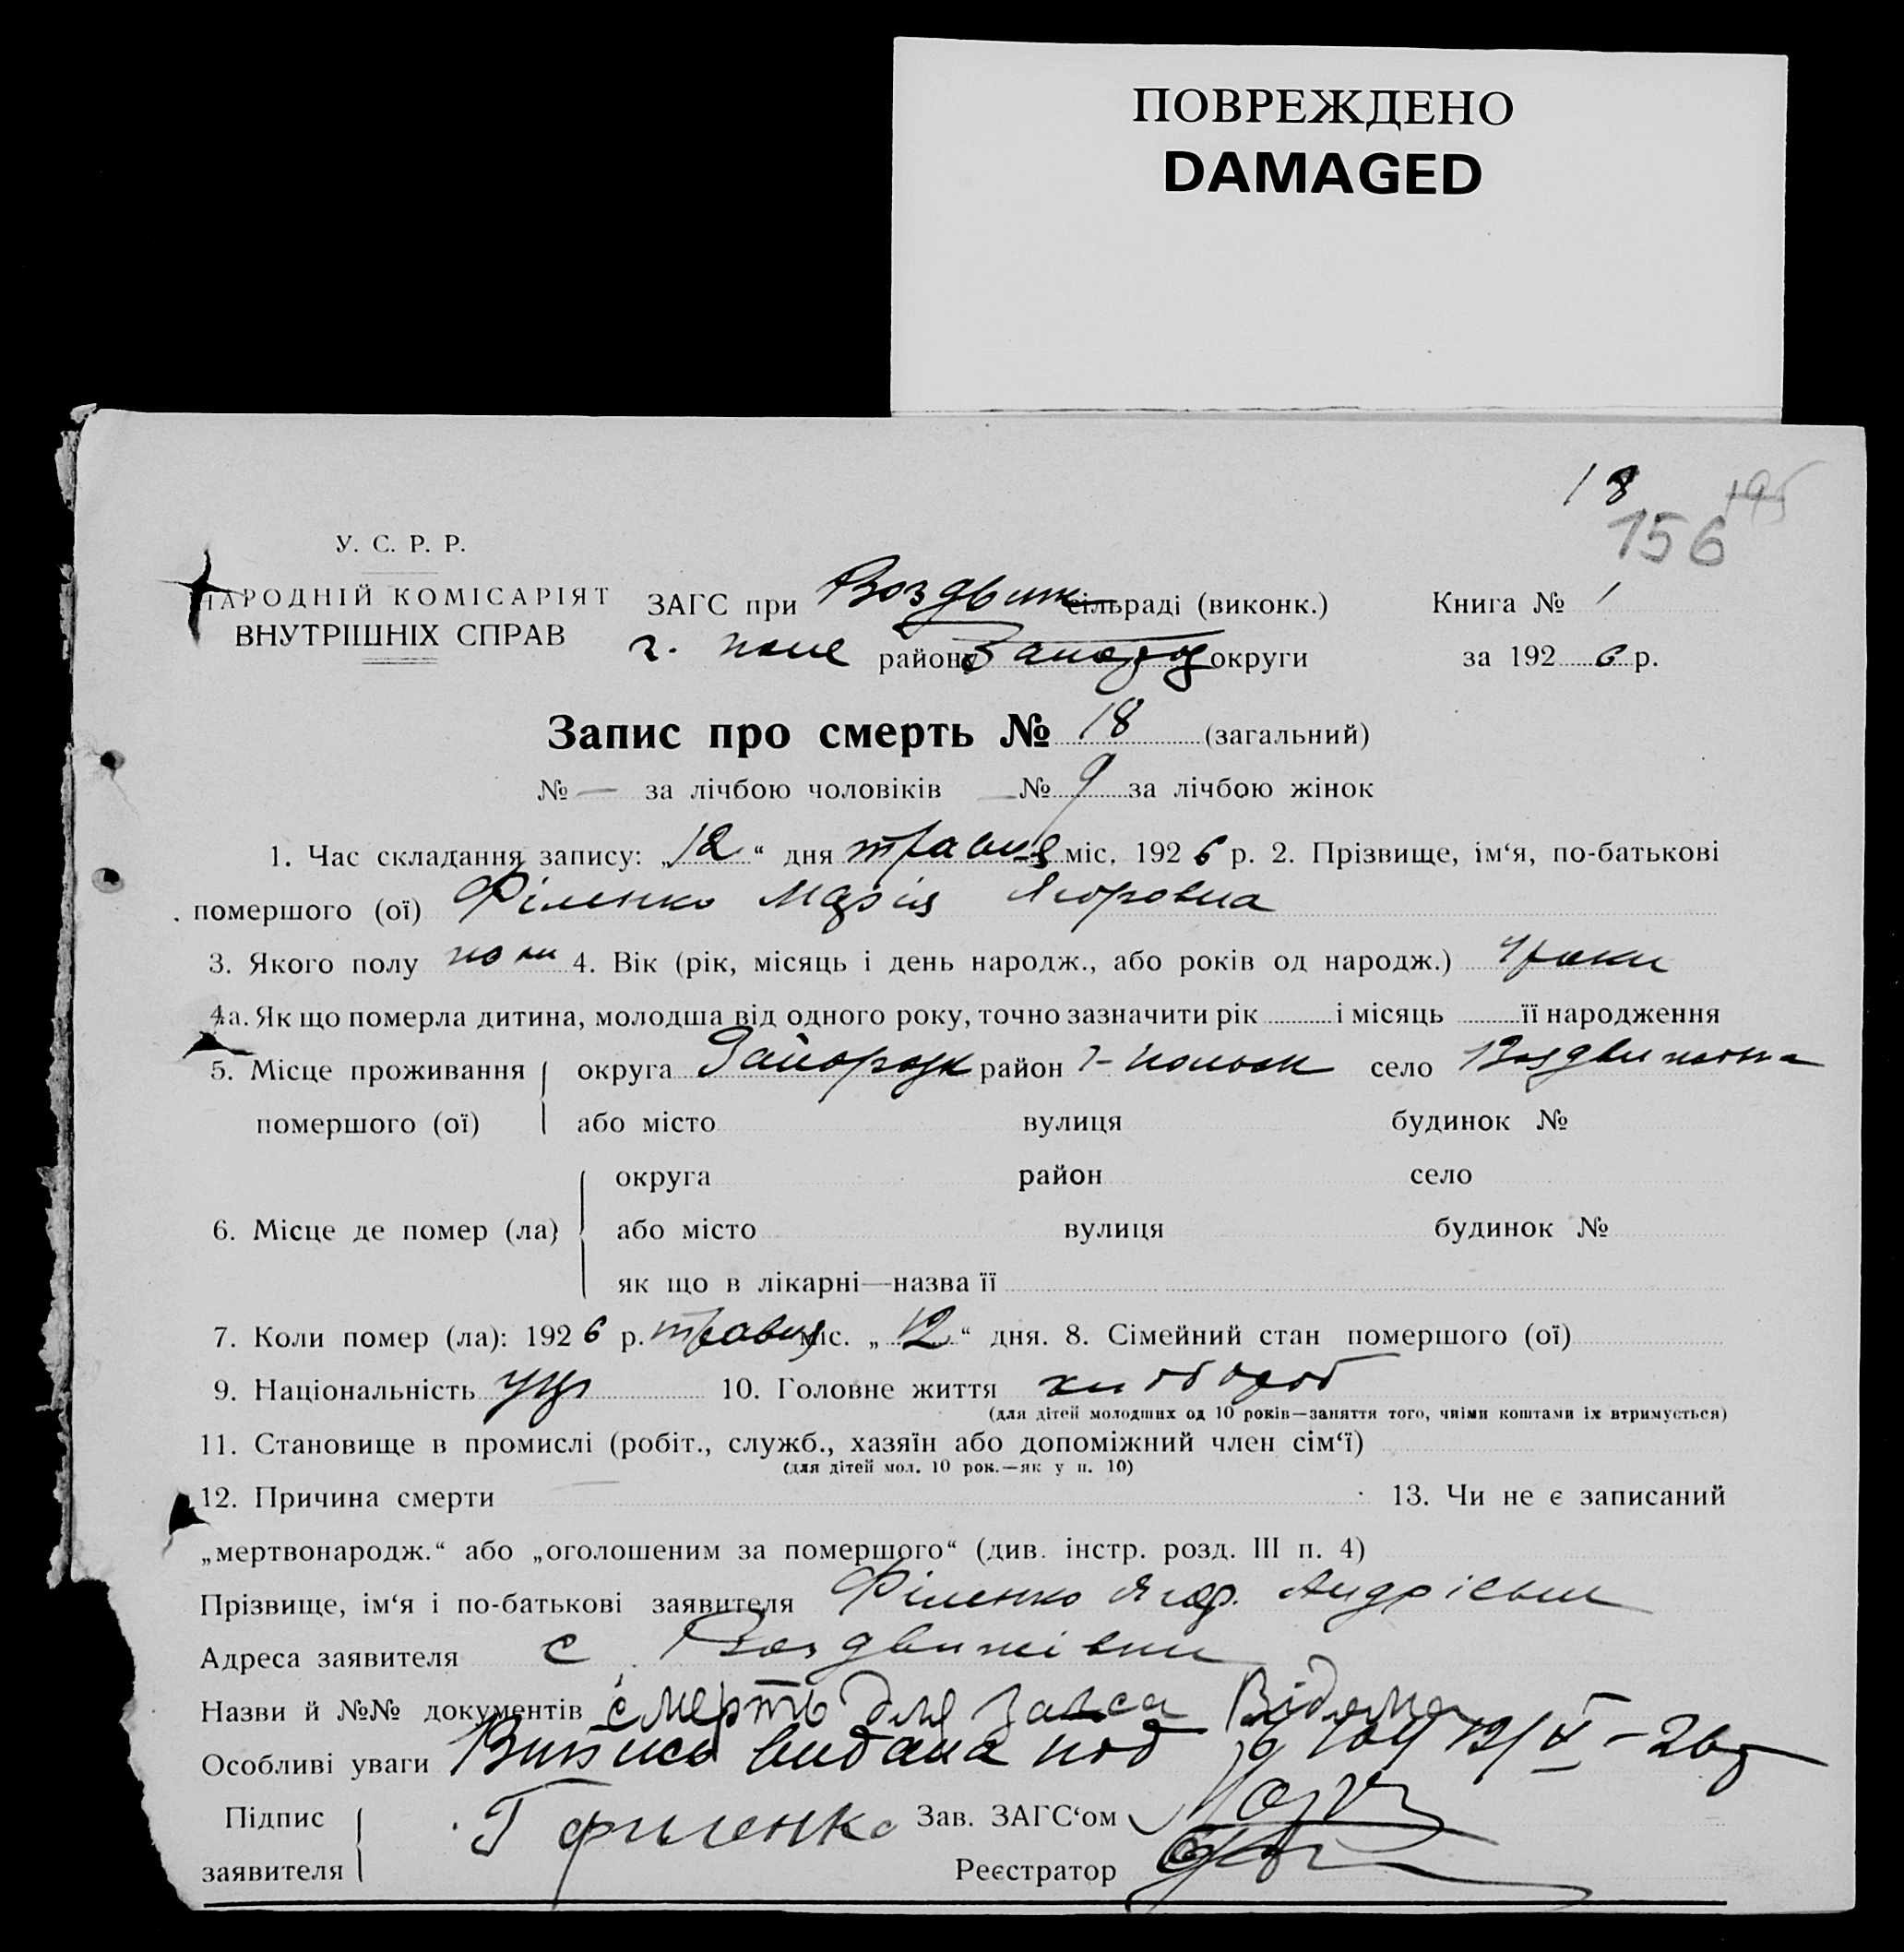 ПОВРЕЖДЕНО
DAMAGED
18
195
156
У. С. Р. Р.
НАРОДНІЙ КОМІСАРІЯТ
ВНУТРІШНІХ СПРАВ
ЗАГС при Воздвиж сільраді (виконк.) Книга № 1
г. поле району Запорож округи за 1926 р.
Запис про смерть № 18 (загальний)
№ — за лічбою чоловіків № 9 за лічбою жінок
1. Час складання запису: „12“ дня травня міс. 1926 р. 2. Прізвище, ім‘я, по-батькові
помершого (ої) Філенко Марія Ягоровна
3. Якого полу жін 4. Вік (рік, місяць і день народж., або років од народж.) 4 роки
4а. Як що померла дитина, молодша від одного року, точно зазначити рік і місяць її народження
5. Місце проживання помершого (ої) округа Запорож район г-польск село Воздвижовка
або місто вулиця будинок №
6. Місце де помер (ла) округа район село
або місто вулиця будинок №
як що в лікарні—назва її
7. Коли помер (ла): 1926 р. травня міс. „12“ дня. 8. Сімейний стан помершого (ої)
9. Національність укр 10. Головне життя хлібороб
(для дітей молодших од 10 років—заняття того, чиїми коштами їх втримується)
11. Становище в промислі (робіт., служб., хазяїн або допоміжний член сім‘ї)
(для дітей мол. 10 рок.—як у п. 10)
12. Причина смерти 13. Чи не є записаний
„мертвонародж.“ або „оголошеним за померщого“ (див. інстр. розд. III п. 4)
Прізвище, ім‘я і по-батькові заявителя Філенко Ягор. Андрієвич
Адреса заявителя с Воздвижівки
Назви й №№ документів смерть для Загса
Особливі уваги Витпись видана под № 104 12/V – 26 г
Підпис заявителя Г Филенко Зав. ЗАГС‘ом
Реєстратор